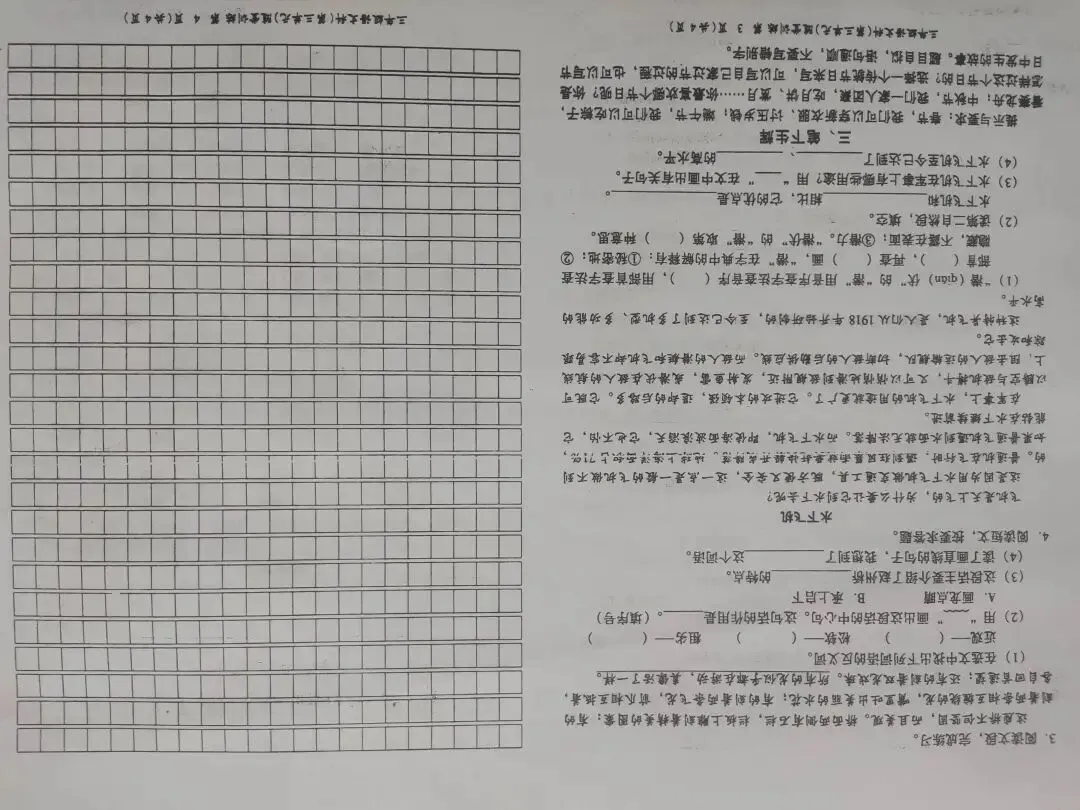 3. 阅读文段，完成练习。
这座桥不但坚固，而且美观。桥面两侧有石栏，栏板上雕刻着精美的图案：有的
刻着两条相互缠绕的龙，嘴里吐出美丽的水花；有的刻着两条飞龙，前爪相互抵着，
各自回首遥望；还有的刻着双龙戏珠。所有的龙似乎都在游动，真像活了一样。
（1）在选文中找出下列词语的反义词。
近观—（ ） 松软—（ ） 粗劣—（ ）
（2）用“﹏﹏”画出这段话的中心句。这句话的作用是____。（填序号）
A. 画龙点睛 B. 承上启下
（3）这段话主要介绍了赵州桥________的特点。
（4）读了画直线的句子，我想到了________这个词语。
4. 阅读短文，按要求答题。
水下飞机
飞机是天上飞的，为什么要让它到水下去呢？
这是因为用水下飞机做交通工具，既方便又安全，这一点是一般的飞机做不到
的。普通机在飞行时，遇到狂风暴雨
如果普通飞机遇到水面就无法降落。而水下飞机，即使海面波浪滔天，它也不怕，它
能钻在水下继续前进。
在军事上，水下飞机的用途就更广了。它进攻的本领强，退却的后路多。它既可
以腾空与敌机搏斗，又可以悄悄地潜到敌舰附近，发射鱼雷，或潜伏在敌人的航线
上，阻击敌人的运输舰队，切断敌人的后勤供应线。而敌人的潜艇和飞机却不容易跟
踪和攻击它。
这种特异飞机，是人们从1918年开始研制的，至今已达到了多机型、多功能的
高水平。
（1）“潜（qián）伏”的“潜”用音序查字法查音序（ ），用部首查字法查
部首（ ），再查（ ）画，“潜”在字典中的解释有：①秘密地；②
隐藏，不露在表面；③潜力。“潜伏”的“潜”取第（ ）种意思。
（2）读第二自然段，填空。
水下飞机和____________相比，它的优点是____________。
（3）水下飞机在军事上有哪些用途？用“____”在文中画出有关句子。
（4）水下飞机至今已达到了________、________的高水平。
三、笔下生辉
提示与要求：春节，我们可以穿新衣服、讨压岁钱；端午节，我们可以吃粽子，
看赛龙舟；中秋节，我们一家人团聚，吃月饼、赏月……你最喜欢哪个节日呢？你是
怎样过这个节日的？选择一个传统节日来写，可以写自己家过节的过程，也可以写节
日中发生的故事。题目自拟，语句通顺，不要写错别字。
三年级语文科(第三单元)随堂训练 第 3 页(共4页)
三年级语文科(第三单元)随堂训练 第 4 页(共4页)